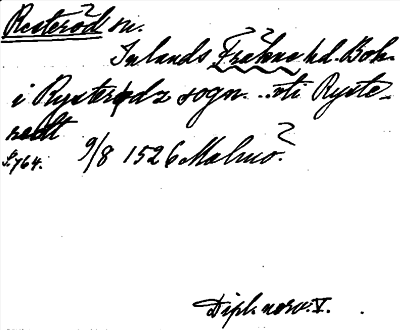 Resteröd sn.
Inlands Fräkne hd. Boh.
i Rysterødz sogn. ..uti Ryste-
rødt
S. 764. 9/8 1526 Malmö.
Dipl. norv. V.